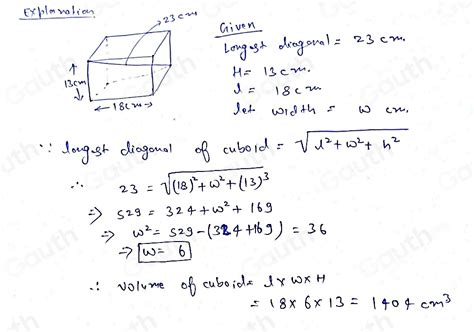 Explanation
23cm
13cm
18cm
Given
Longest diagonal = 23 cm.
H = 13 cm.
l = 18 cm
let width = w cm.
∵ longest diagonal of cuboid = √l²+w²+h²
∴ 23 = √(18)²+w²+(13)³
⇒ 529 = 324+w²+169
⇒ w² = 529-(324+169) = 36
⇒ w = 6
∴ volume of cuboid = l×w×H
= 18×6×13 = 1404 cm³
Gauth